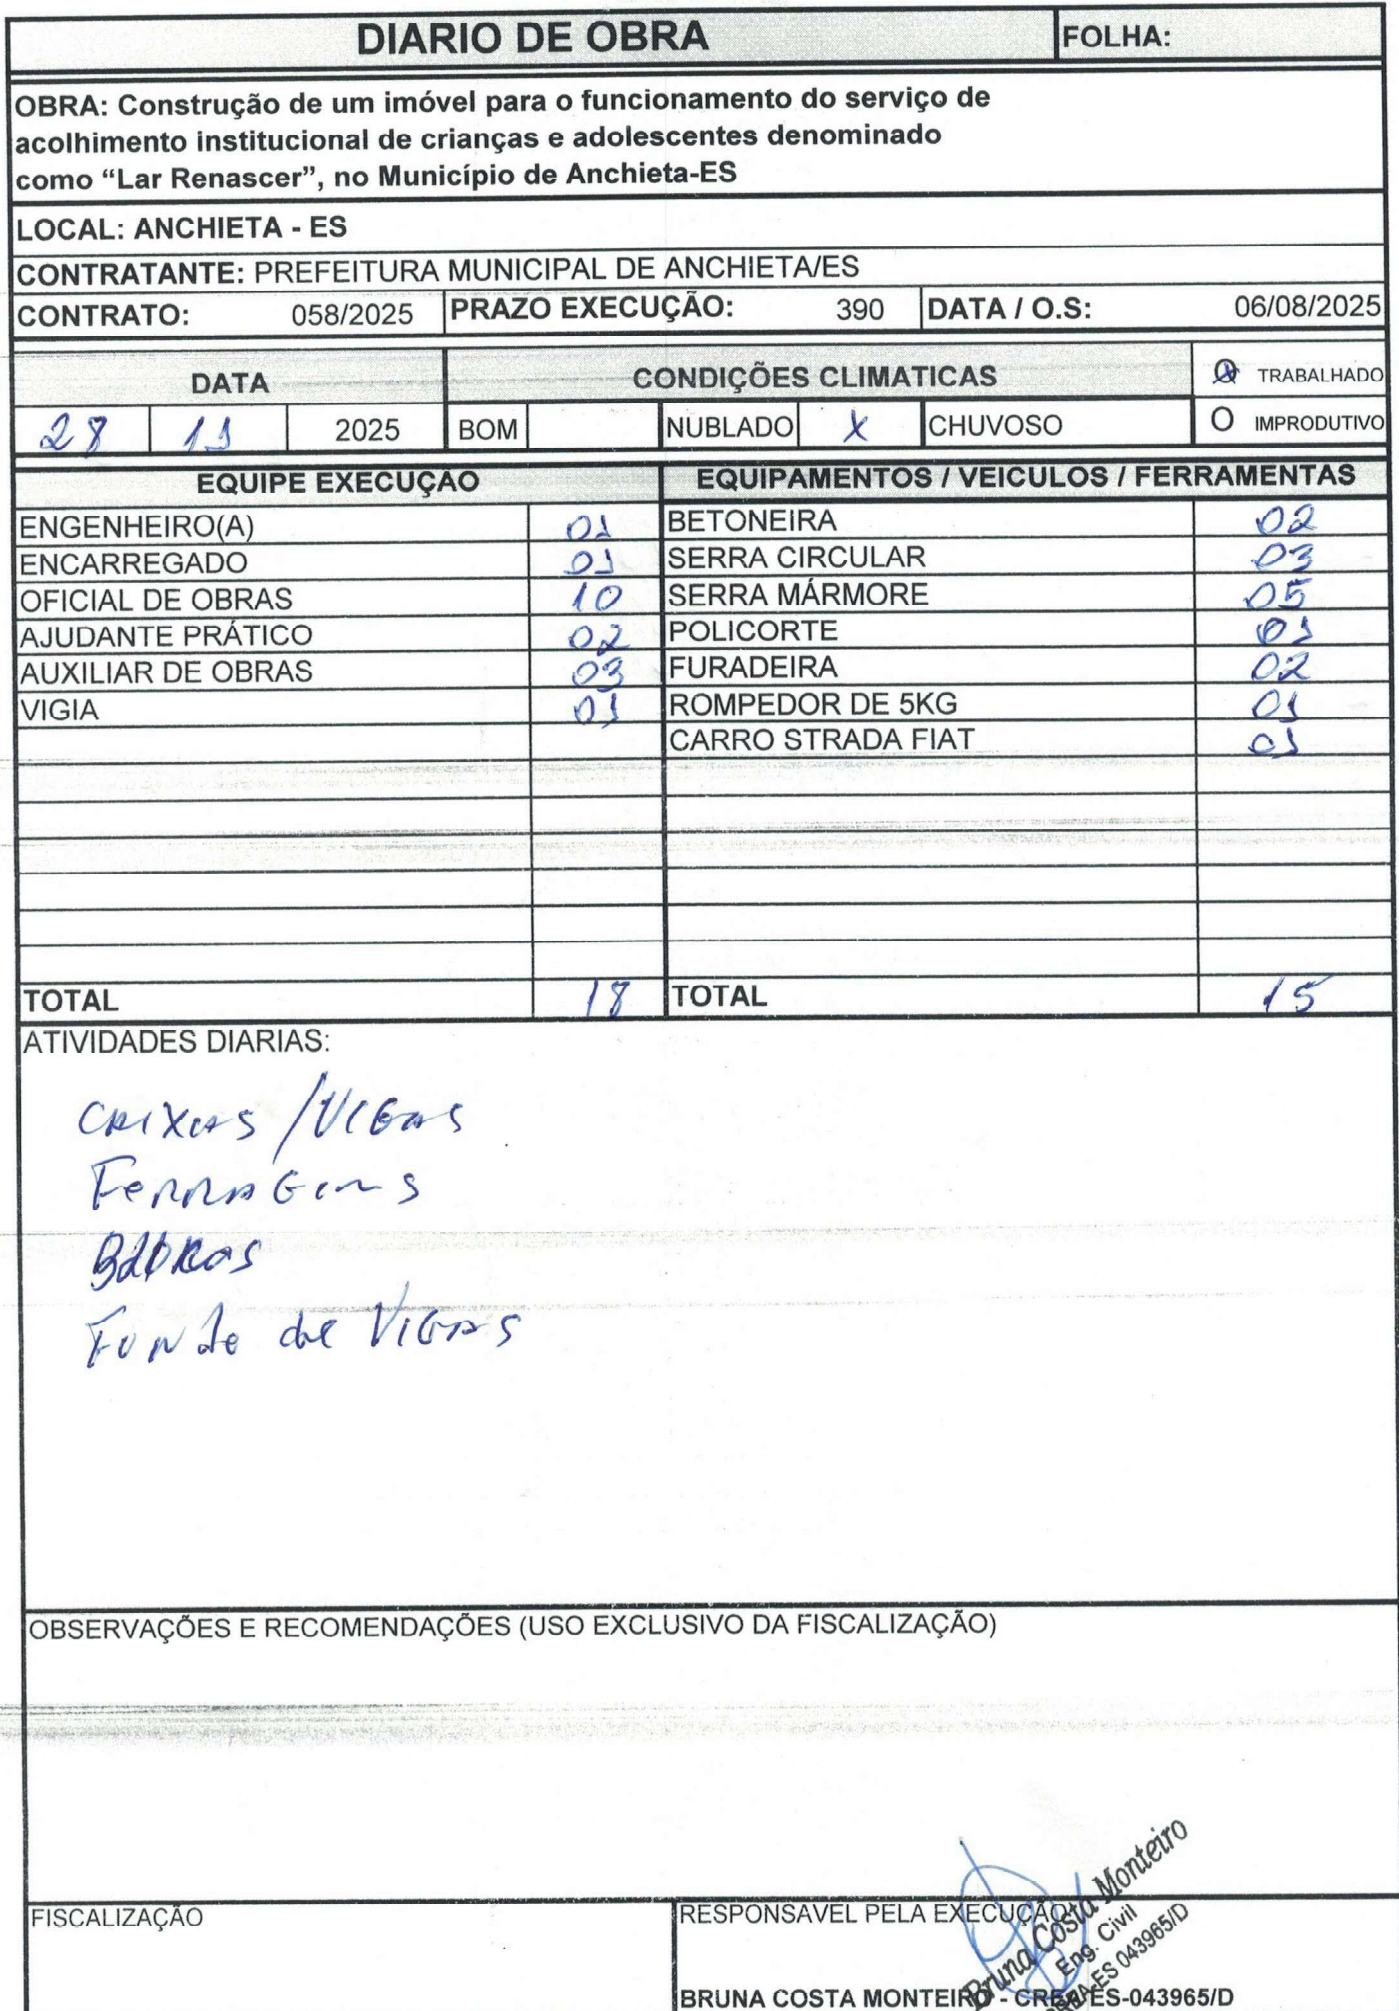 DIARIO DE OBRA FOLHA:
OBRA: Construção de um imóvel para o funcionamento do serviço de
acolhimento institucional de crianças e adolescentes denominado
como “Lar Renascer”, no Município de Anchieta-ES
LOCAL: ANCHIETA - ES
CONTRATANTE: PREFEITURA MUNICIPAL DE ANCHIETA/ES
CONTRATO: 058/2025 PRAZO EXECUÇÃO: 390 DATA / O.S: 06/08/2025
DATA CONDIÇÕES CLIMATICAS TRABALHADO
28 11 2025 BOM NUBLADO X CHUVOSO IMPRODUTIVO
EQUIPE EXECUÇAO EQUIPAMENTOS / VEICULOS / FERRAMENTAS
ENGENHEIRO(A) 01 BETONEIRA 02
ENCARREGADO 01 SERRA CIRCULAR 03
OFICIAL DE OBRAS 10 SERRA MÁRMORE 05
AJUDANTE PRÁTICO 02 POLICORTE 01
AUXILIAR DE OBRAS 03 FURADEIRA 02
VIGIA 01 ROMPEDOR DE 5KG 01
CARRO STRADA FIAT 01
TOTAL 18 TOTAL 15
ATIVIDADES DIARIAS:
CAIXAS / VIGAS
FerrAGens
Fundo de VIGAS
OBSERVAÇÕES E RECOMENDAÇÕES (USO EXCLUSIVO DA FISCALIZAÇÃO)
FISCALIZAÇÃO RESPONSAVEL PELA EXECUÇÃO
Bruna Costa Monteiro
Eng. Civil
CREA-ES 043965/D
BRUNA COSTA MONTEIRO - CREA ES-043965/D